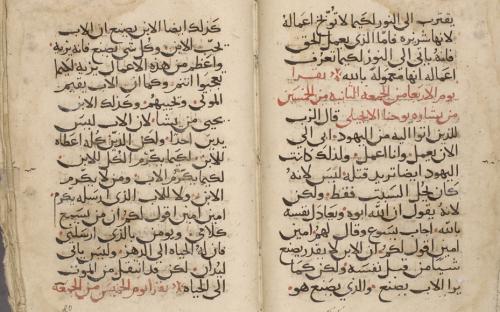 يقترب الى النور لكيما لا توبخ اعماله
لانها شريره فامّا الذي يعمل الحق
فانه ياتي الى النور لكيما تعرف
اعماله انها معموله بالله • يقرا
يوم الاربعا من الجمعه الثانيه من الخمسين
من بشاره يوحنا الانجيلي قال الرب
للذين اتوا اليه من اليهود • ابي الى
الان يعمل وانا اعمل • ولذلك كانت
اليهود ايضا تريد قتله ليس لانه
كان يحل السبت فقط • ولكن
لانه يقول ان الله ابوه ويعادل نفسه
بالله • اجاب يسوع وقال لهم امين
امين اقول لكم ان الابن لا يقدر يصنع
شيا من قبل نفسه • ولكن كما
يرا الاب يصنع • والذي يصنع هو •
كذلك ايضا الابن يصنع ان الاب
يحب الابن • وكل شي يصنع فانه يريه
واعظم من هذه الاعمال يريه لكيما
تعجبوا انتم • وكما ان الاب يقيم
الموتى • ويحييهم • وكذلك الابن
يحيي من يشا • لان الاب ليس
يدين احدا • ولكن الدين كله اعطاه
للابن • لكيما يكرم الكل الابن •
لكيما يكرم الاب • ومن لا يكرم
الابن • ولا للاب الذي ارسله يكرم •
امين امين اقول لكم ان من سمع
كلامي • ويومن بالذي ارسلني •
فان له الحياه الى الدهر • وليس ياتي
لكن قد انتقل من الموت
الى الحياه • يقرا يوم الخميس من الجمعه